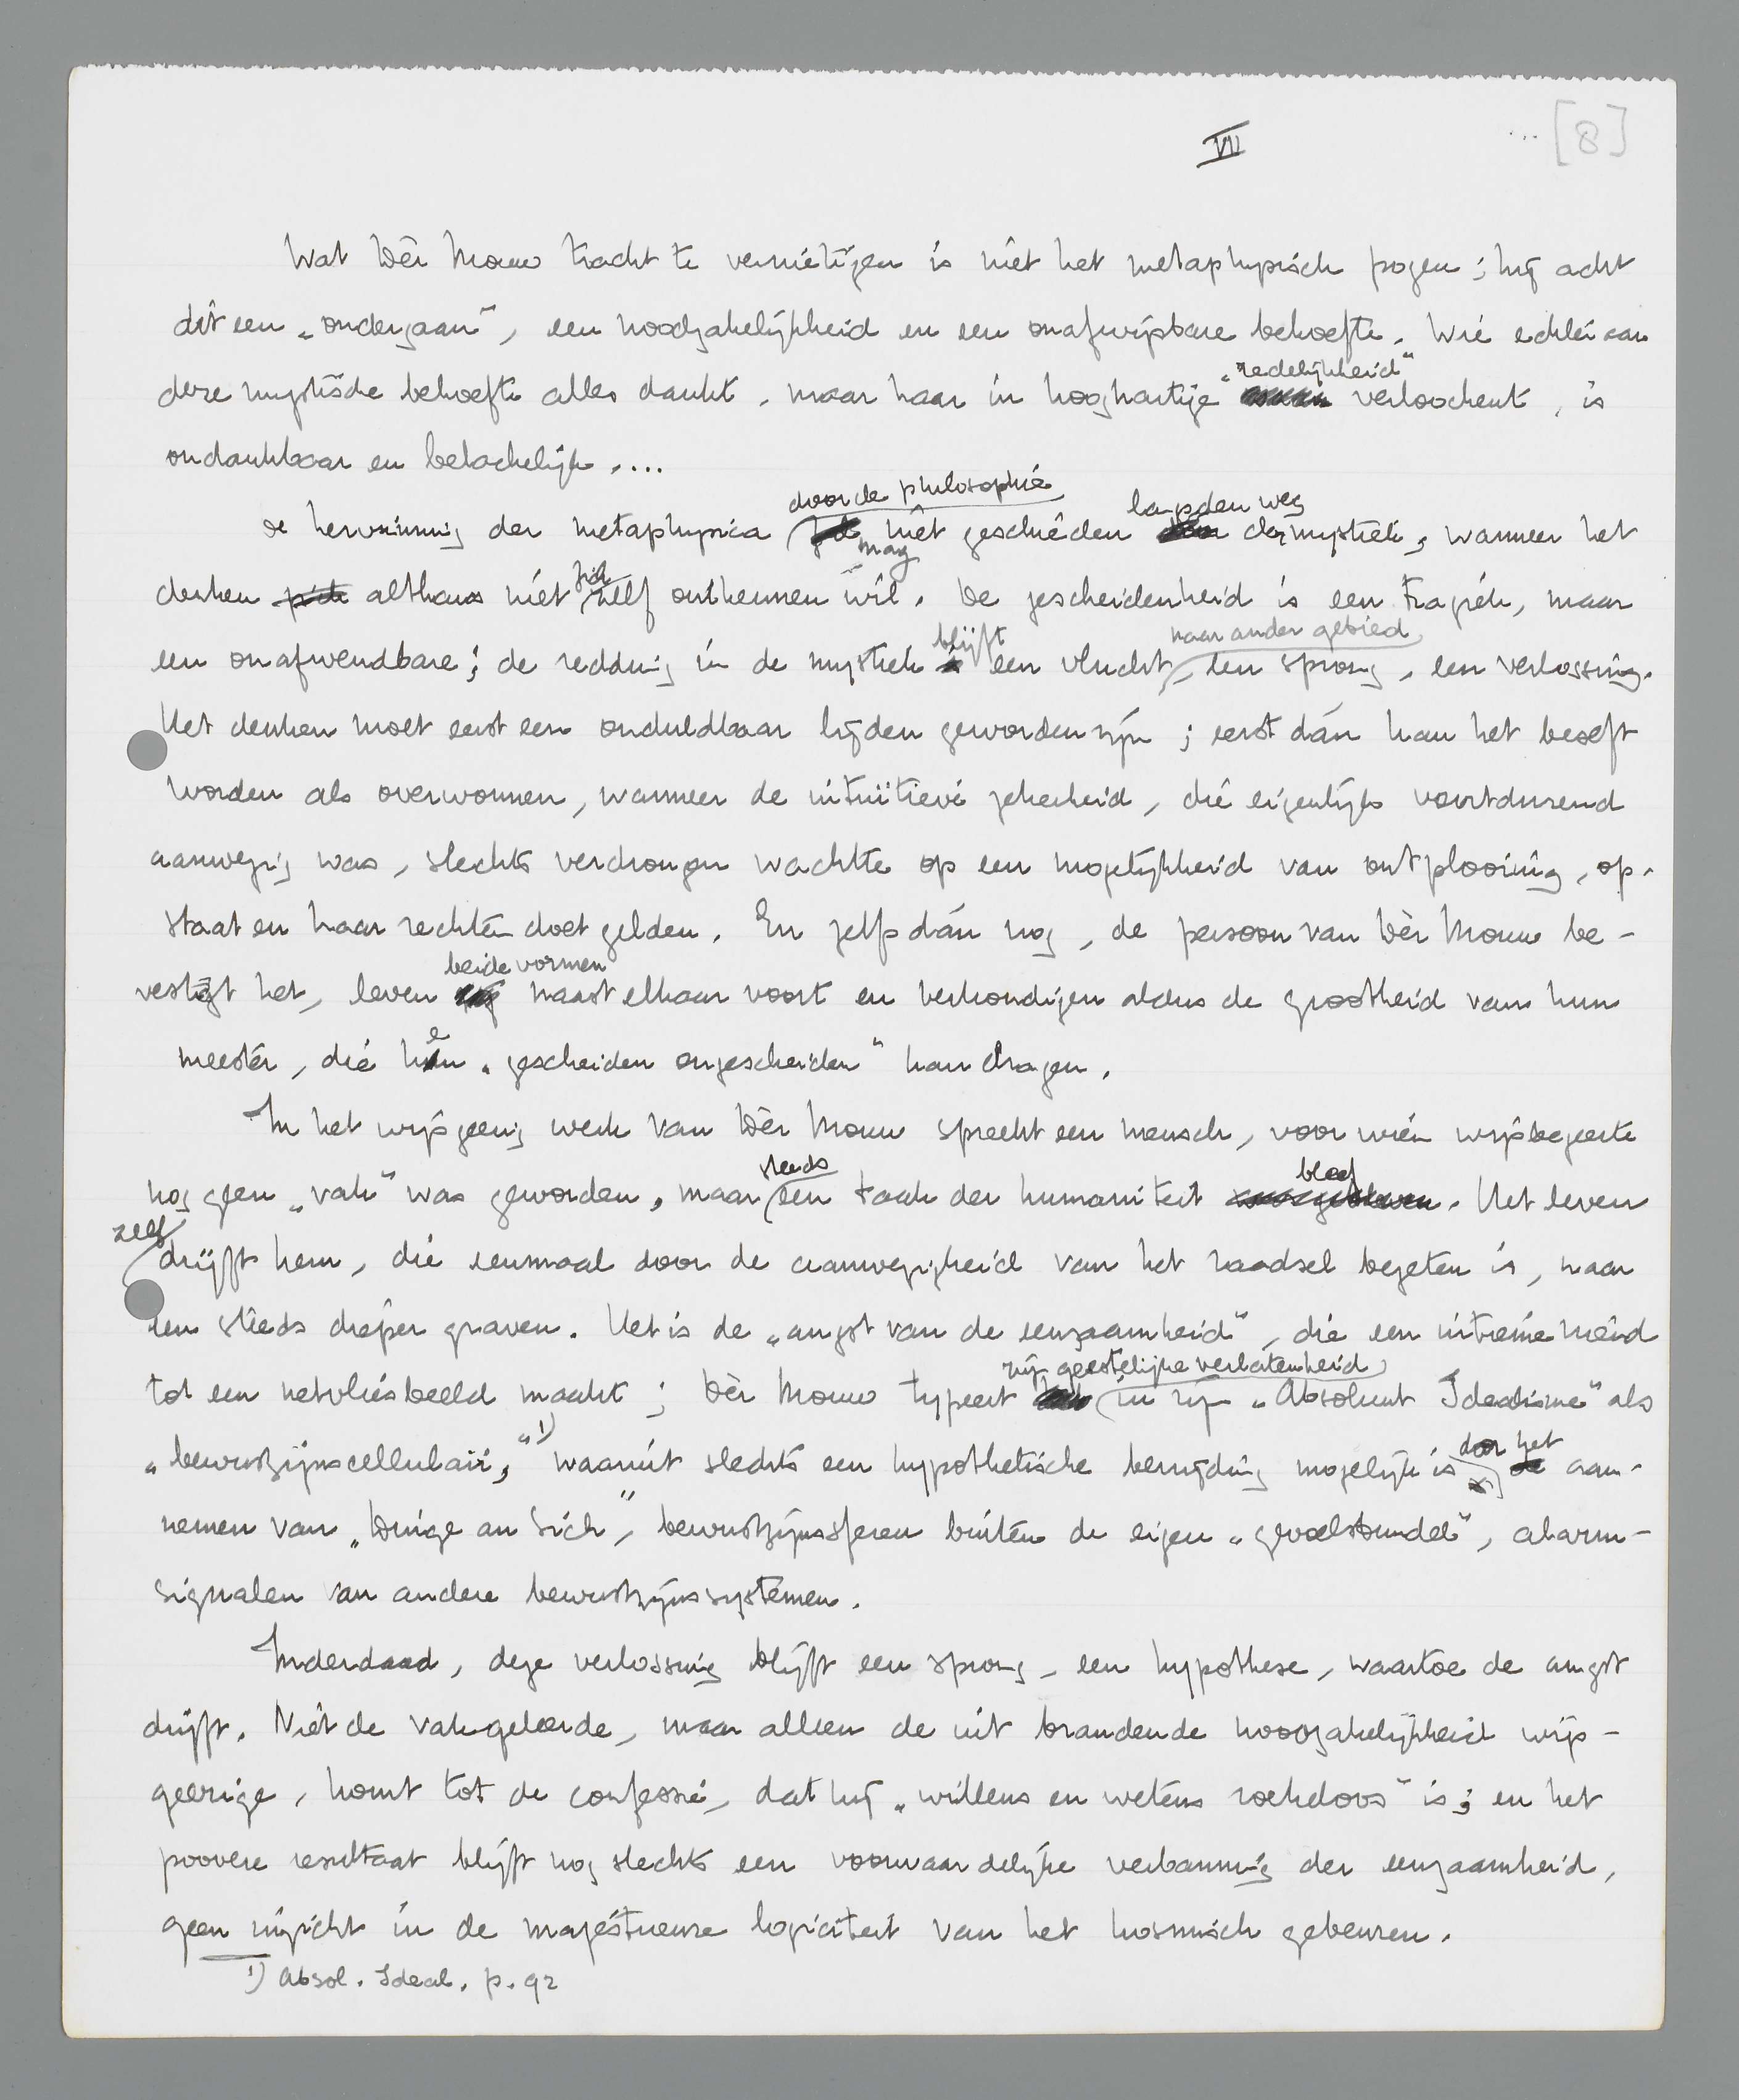 VII
... [8]
Wat Dèr Mouw tracht te vernietigen is niet het metaphysisch pogen; hij acht
dit een „ondergaan”, een noodzakelijkheid en een onafwijsbare behoefte. Wie echter aan
deze mystische behoefte alles dankt, maar haar in hooghartige „redelijkheid” verloochent, is
ondankbaar en belachelijk....
De herwinning der metaphysica door de philosophie mag niet geschieden langs den weg der mystiek, wanneer het
denken althans niet zich zelf ontkennen wil. De gescheidenheid is een tragiek, maar
een onafwendbare; de redding in de mystiek blijft een vlucht naar ander gebied, een sprong, een verlossing.
Het denken moet eerst een onduldbaar lijden geworden zijn; eerst dán kan het beseft
worden als overwonnen, wanneer de intuïtieve zekerheid, die eigenlijk voortdurend
aanwezig was, slechts verdrongen wachtte op een mogelijkheid van ontplooiing, op-
staat en haar rechten doet gelden. En zelfs dán nog, de persoon van Dèr Mouw be-
vestigt het, leven beide vormen naast elkaar voort en verkondigen aldus de grootheid van hun
meester, die hen „gescheiden ongescheiden” kan dragen.
In het wijsgeerig werk van Dèr Mouw spreekt een mensch, voor wien wijsbegeerte
nog geen „vak” was geworden, maar steeds een taak der humaniteit bleef. Het leven
zelf drijft hem, die eenmaal door de aanwezigheid van het raadsel bezeten is, naar
een steeds dieper graven. Het is de „angst van de eenzaamheid”, die een intieme vriend
tot een netvliesbeeld maakt; Dèr Mouw typeert zijn geestelijke verlatenheid in zijn „Absoluut Idealisme” als
„bewustzijnscellulair,” 1) waaruit slechts een hypothetische bevrijding mogelijk is door het aan-
nemen van „Dinge an Sich”, bewustzijnssferen buiten de eigen „gevoelsbundel”, alarm-
signalen van andere bewustzijnssystemen.
Inderdaad, deze verlossing blijft een sprong, een hypothese, waartoe de angst
drijft. Niet de vakgeleerde, maar alleen de uit brandende noodzakelijkheid wijs-
geerige, komt tot de confessie, dat hij „willens en wetens roekeloos” is; en het
poovere resultaat blijft nog slechts een voorwaardelijke verbanning der eenzaamheid,
geen inzicht in de majestueuze logiciteit van het kosmisch gebeuren.
1) Absol. Ideal. p. 92